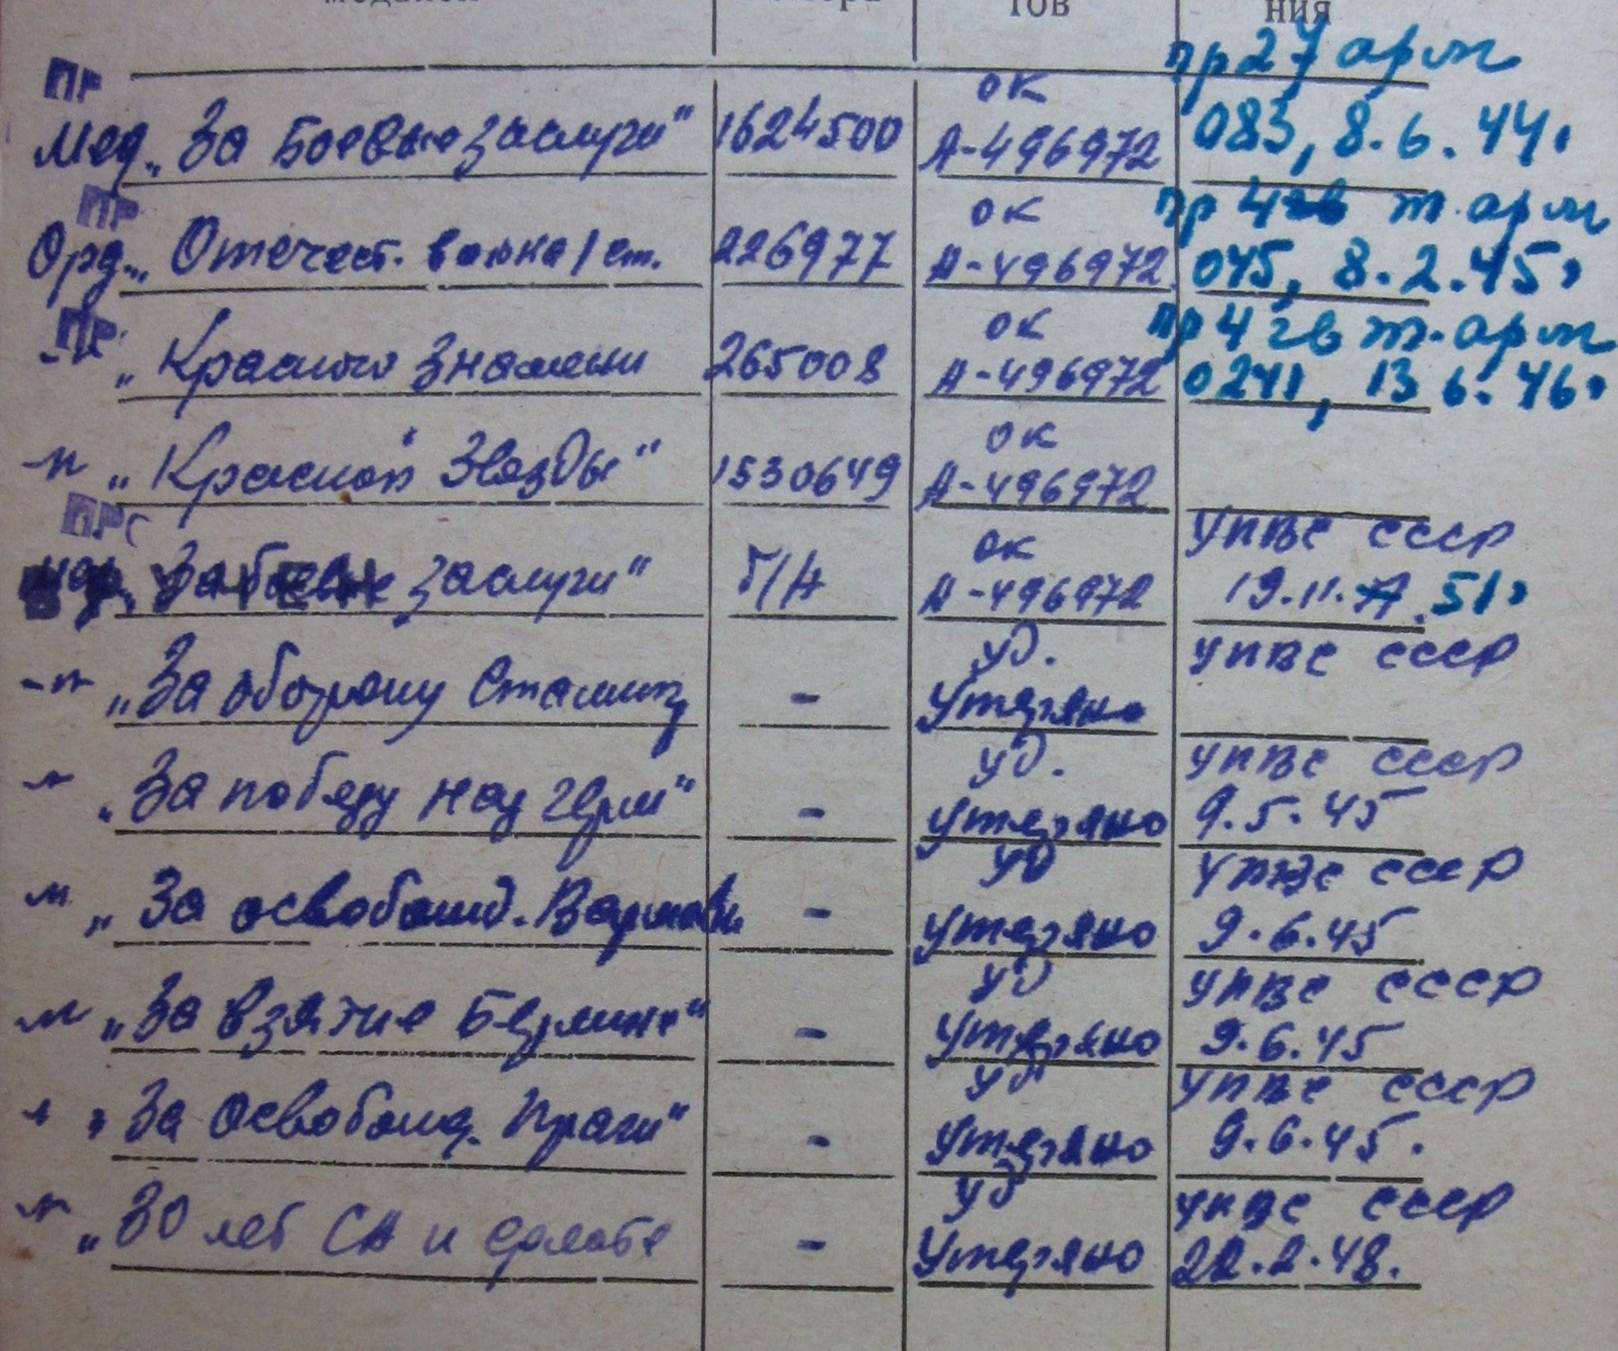 тов
ния
ПР
ок
пр 27 арм
Мед. „За боевые заслуги"
1624500
А-496972
083, 8.6.44г
ПР
ок
пр 4 гв т. арм
Орд. „Отечест. война 1 ст.
226977
А-496972
045, 8.2.45г
ПР
ок
пр 4 гв т. арм
„Красного Знамени
265008
А-496972
0241, 13 6. 46г
ок
-"- „Красной Звезды"
1530649
А-496972
ПР
ок
УПВС СССР
мед. „За боевые заслуги"
Б/Н
А-496972
19.11. 51г
уд.
УПВС СССР
-"- „За оборону Сталинг
-
Утеряно
уд.
УПВС СССР
-"- „За победу над Герм"
-
утеряно
9.5.45
уд
УПВС СССР
-"- „За освобожд. Варшавы
-
утеряно
9.6.45
уд
УПВС СССР
-"- „За взятие Берлина"
-
утеряно
9.6.45
уд
УПВС СССР
" „За Освобожд. Праги"
-
утеряно
9.6.45.
уд
УПВС СССР
-"- „30 лет СА и
-
Утеряно
22.2.48.